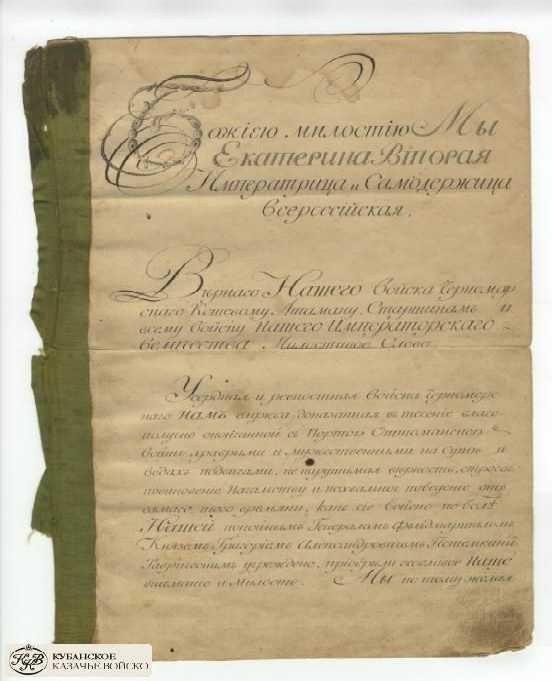 Божіею милостію Мы
Екатерина Вторая
Императрица и Самодержица
Всероссійская.
Вѣрнаго Нашего Войска Черномор
скаго Кошевому Атаману, Старшинамъ и
всему Войску Нашего Императорскаго
Величества Милостивое Слово
Усердная и ревностная Войска Черномор
скаго Намъ служба, доказанная въ теченіе благо
получно оконченной съ Портою Оттоманскою
войны храбрыми и мужественными на сушѣ и
водахъ подвигами, не нарушимая вѣрность, строгое
повиновеніе Начальству и похвальное поведеніе отъ
самаго того времяни, какъ сіе войско по волѣ
Нашей покойнымъ Генераломъ Фельдмаршаломъ
Княземъ Григоріемъ Александровичемъ Потемкинымъ
Таврическимъ учреждено, приобрѣли особливое Наше
вниманіе и Милость. Мы по тому желая
КУБАНСКОЕ
КАЗАЧЬЕ ВОЙСКО